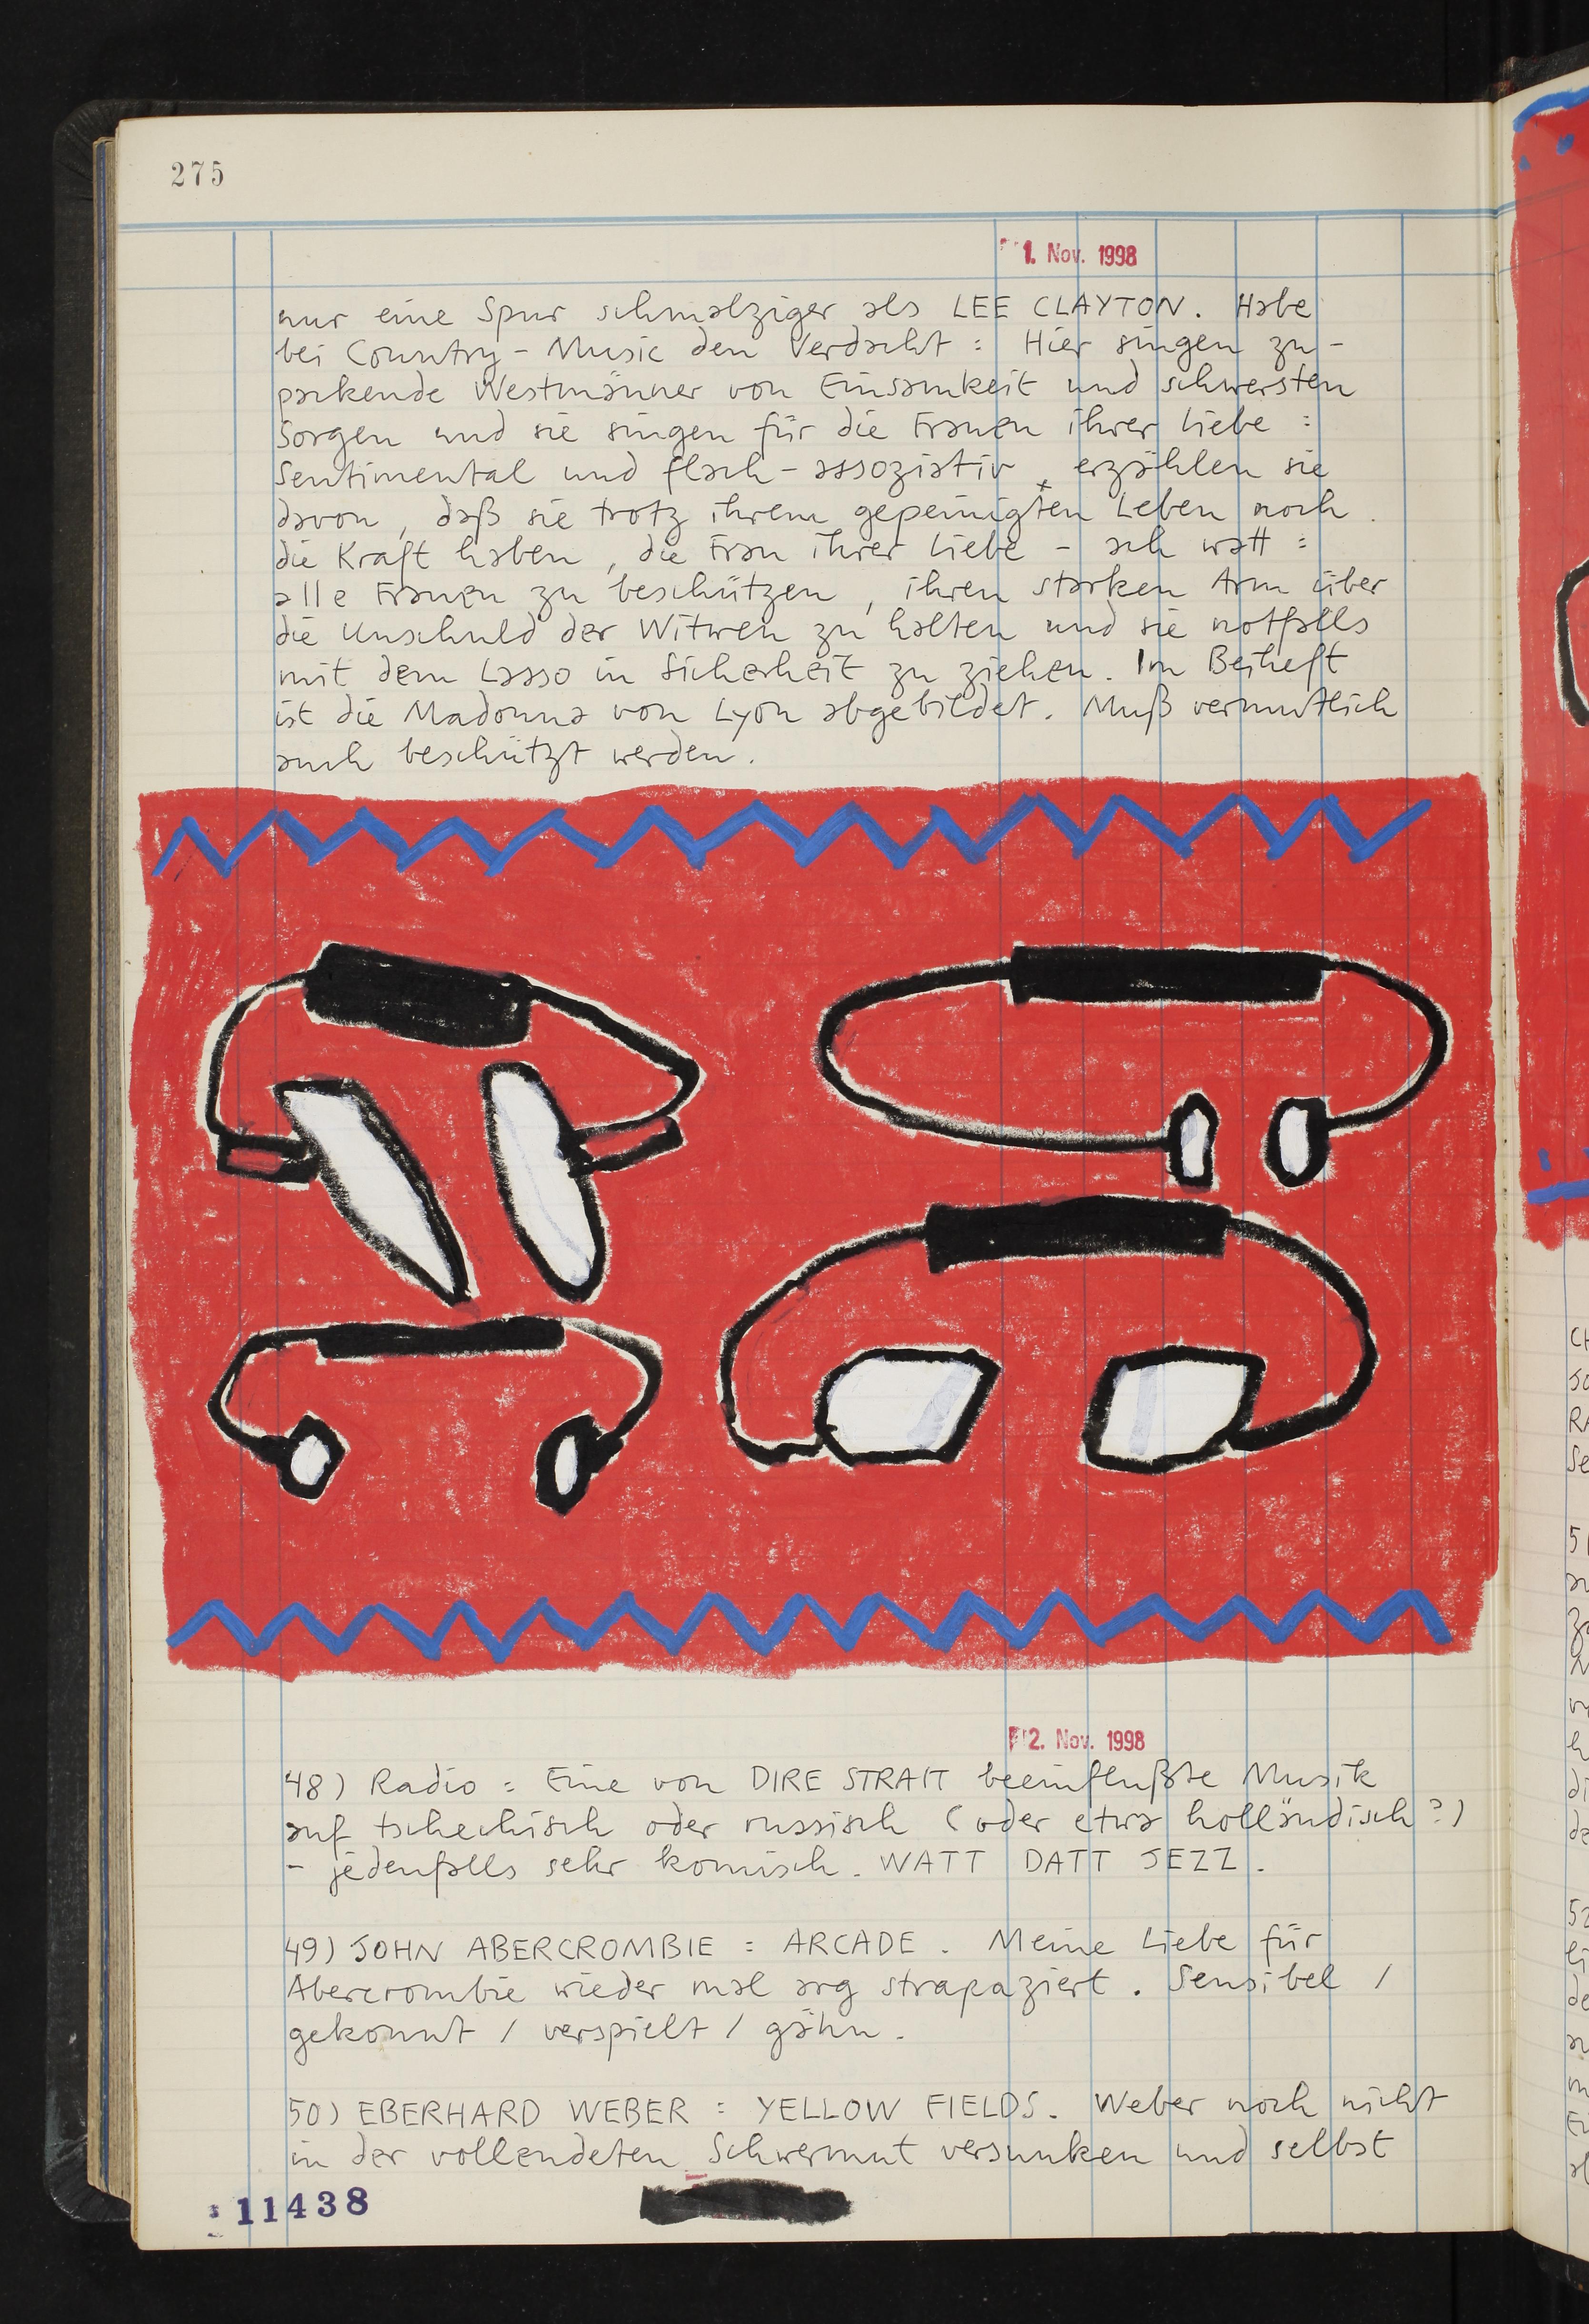 275
1. Nov. 1998
nur eine Spur schmalziger als LEE CLAYTON. Habe
bei Country-Music den Verdacht: Hier singen zu-
packende Westmänner von Einsamkeit und schwersten
Sorgen und sie singen für die Frauen ihrer Liebe:
Sentimental und flach-assoziativ erzählen sie
davon, daß sie trotz ihrem gepeinigten Leben noch
die Kraft haben, die Frau ihrer Liebe - ach watt:
alle Frauen zu beschützen, ihren starken Arm über
die Unschuld der Witwen zu halten und sie notfalls
mit dem Lasso in Sicherheit zu ziehen. Im Beiheft
ist die Madonna von Lyon abgebildet. Muß vermutlich
auch beschützt werden.
2. Nov. 1998
48) Radio: Eine von DIRE STRAIT beeinflußte Musik
auf tschechisch oder russisch (oder etwa holländisch?)
- jedenfalls sehr komisch. WATT DATT JEZZ.
49) JOHN ABERCROMBIE: ARCADE. Meine Liebe für
Abercrombie wieder mal arg strapaziert. Sensibel /
gekonnt / verspielt / gähn.
50) EBERHARD WEBER: YELLOW FIELDS. Weber noch nicht
in der vollendeten Schwermut versunken und selbst
11438